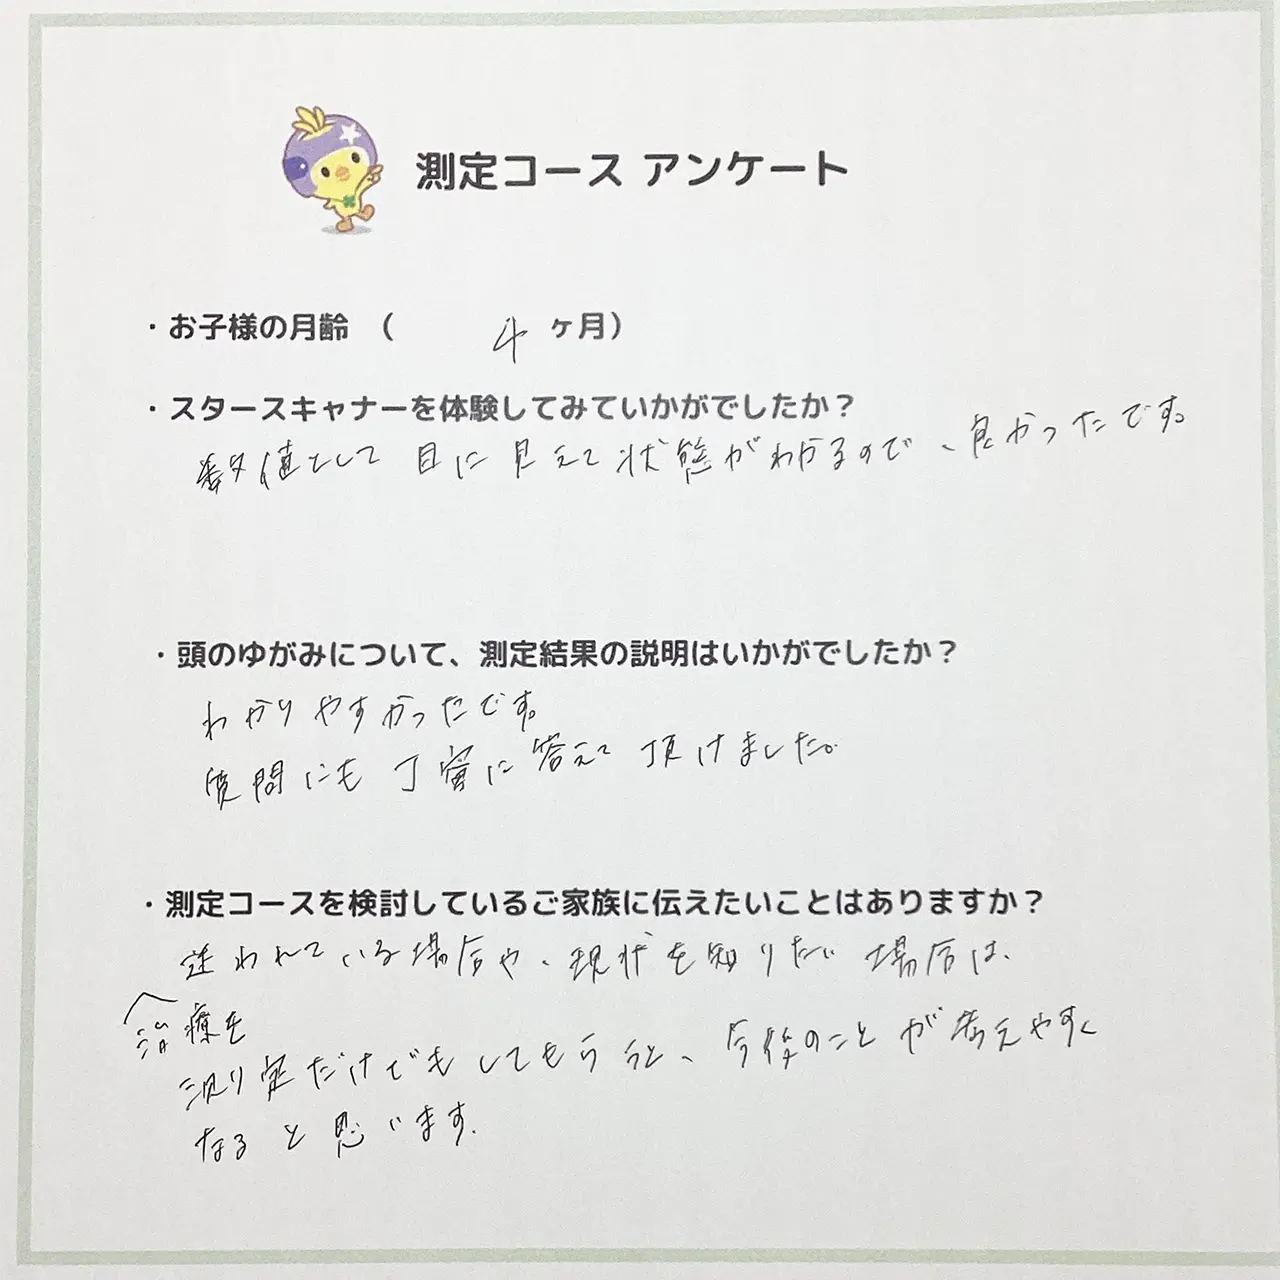 測定コース アンケート
・お子様の月齢 （ 4 ヶ月）
・スタースキャナーを体験してみていかがでしたか？
数値として目に見えて状態がわかるので、良かったです。
・頭のゆがみについて、測定結果の説明はいかがでしたか？
わかりやすかったです。
質問にも丁寧に答えて頂けました。
・測定コースを検討しているご家族に伝えたいことはありますか？
迷われている場合や、現状を知りたい場合は、
治療を
測定だけでもしてもらうと、今後のことが考えやすく
なると思います。